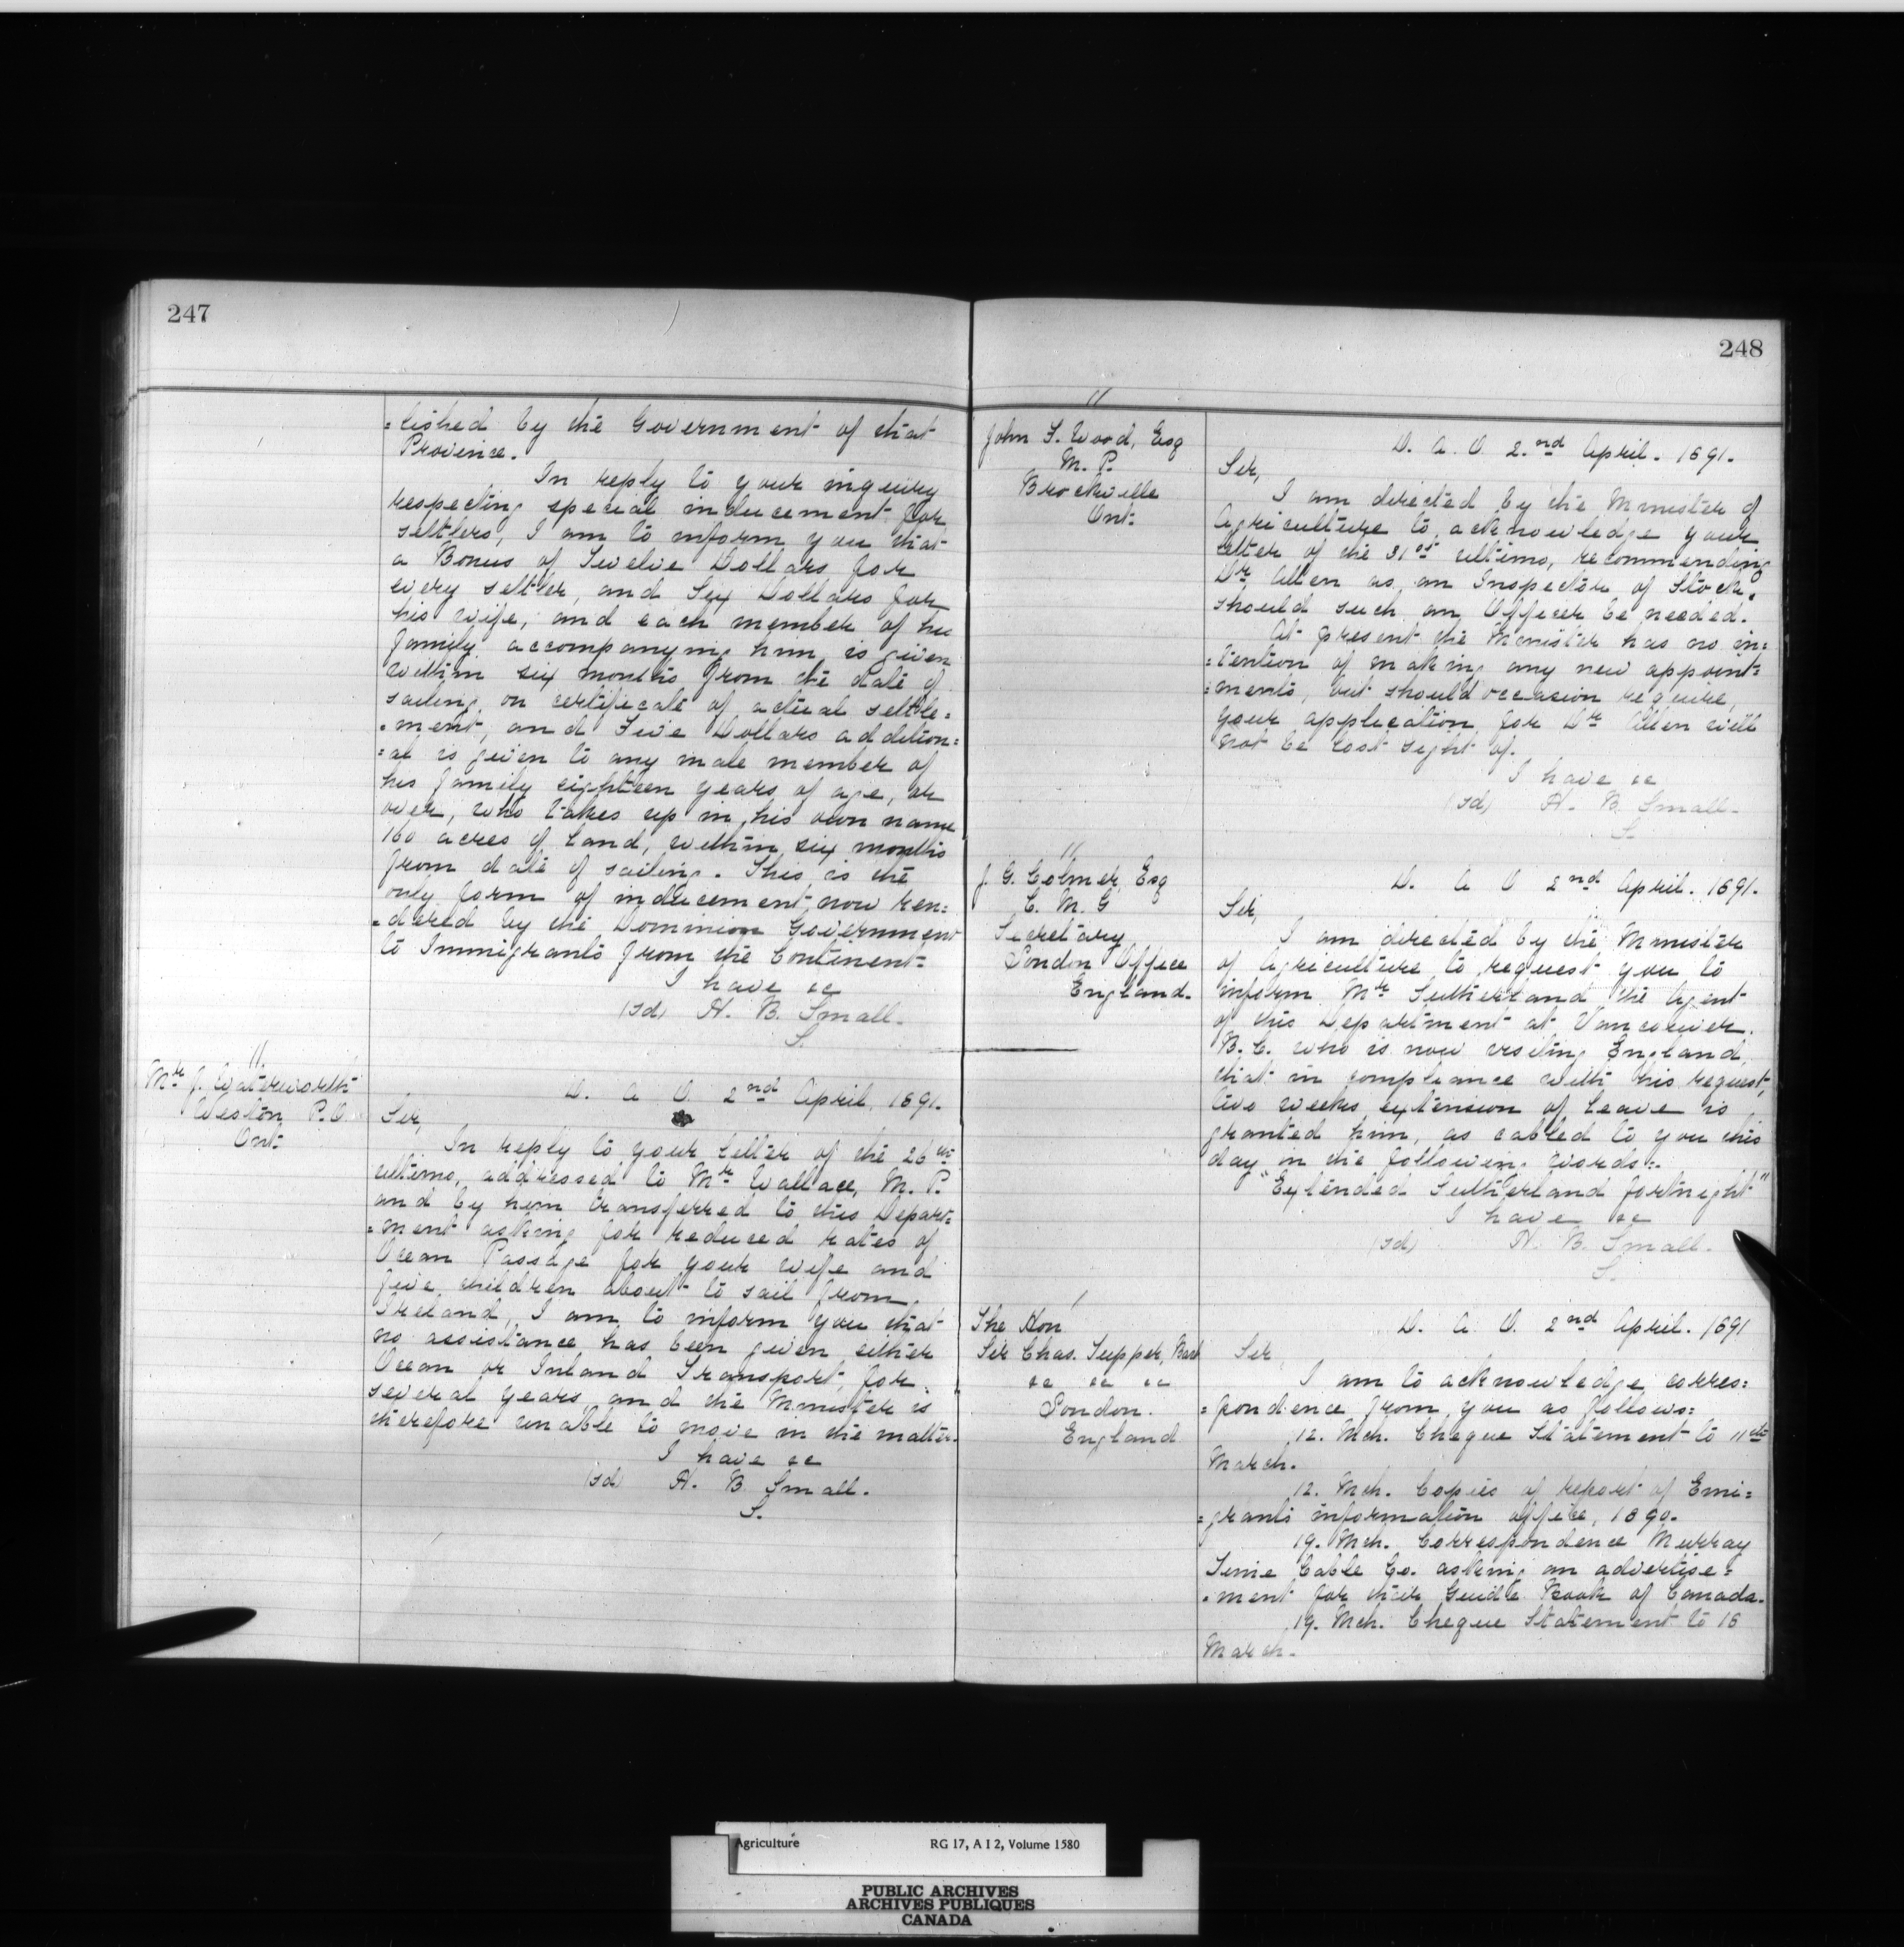 247
=lished by the Government of that
Province.
In reply to your inquiry
respecting special inducement for
settlers, I am to inform you that
a Bonus of Twelve Dollars for
every settler, and Six Dollars for
his wife, and each member of his
family accompanying him is given
within six months from the date of
sailing, on certificate of actual settle=
=ment, and Five Dollars addition=
=al is given to any male member of
his family eighteen years of age, or
over, who takes up in his own name
160 acres of land, within six months
from date of sailing. This is the
only form of inducement now ren=
=dered by the Dominion Government
to Immigrants from the Continent.
I have &c
(sd) H. B. Small.
S.
11.
Mr J. Waterworth
Weston P.O.
Ont.
D. A. O. 2nd April, 1891.
Sir,
In reply to your letter of the 26th
ultimo, addressed to Mr Wallace, M.P.
and by him transferred to this Depart=
=ment asking for reduced rates of
Ocean Passage for your wife and
five children about to sail from
Ireland, I am to inform you that
no assistance has been given either
Ocean or Inland Transport, for
several years, and the Minister is
therefore unable to move in the matter.
I have &c
(sd) H. B. Small.
S.
248
11
John F. Wood, Esq
M. P.
Brockville
Ont.
D. A. O. 2nd April. 1891.
Sir,
I am directed by the Minister of
Agriculture to acknowledge your
letter of the 31st ultimo, recommending
Dr Allen as an Inspector of Stock,
should such an Officer be needed.
At present the Minister has no in=
=tention of making any new appoint=
=ments, but should occasion require,
your application for Dr Allen will
not be lost sight of.
I have &c
(sd) H. B. Small.
S.
11
J. G. Colmer, Esq
C. M. G
Secretary
London Office
England.
D. A. O 2nd April. 1891.
Sir,
I am directed by the Minister
of Agriculture to request you to
inform Mr Sutherland the Agent
of this Department at Vancouver.
B.C. who is now visiting England,
that in compliance with his request,
two weeks extension of leave is
granted him, as cabled to you this
day in the following words:-
"Extended Sutherland fortnight"
I have &c
(sd) H. B. Small.
S.
1
The Hon
Sir Chas. Tupper, Bart
&c &c &c
London.
England
D. A. O. 2nd April. 1891
Sir,
I am to acknowledge corres=
=pondence from you as follows:
12. Mch. Cheque Statement to 11th
March.
12. Mch. Copies of report of Emi=
=grants information office, 1890.
19. Mch. Correspondence Murray
Time Table Co. asking an advertise=
=ment for their Guide Book of Canada.
19. Mch. Cheque Statement to 18
March.
Agriculture RG 17, A I 2, Volume 1580
PUBLIC ARCHIVES
ARCHIVES PUBLIQUES
CANADA